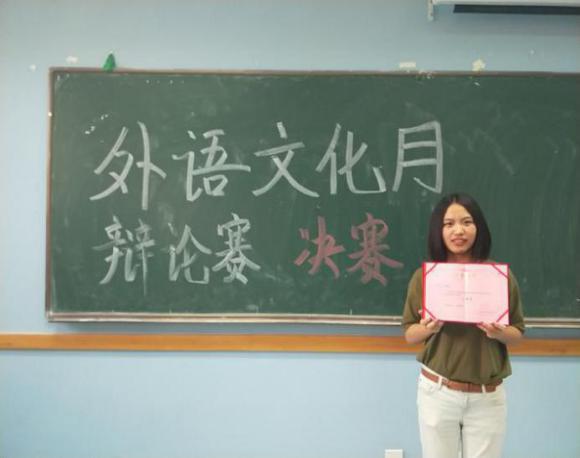 外语文化月
辩论赛 决赛